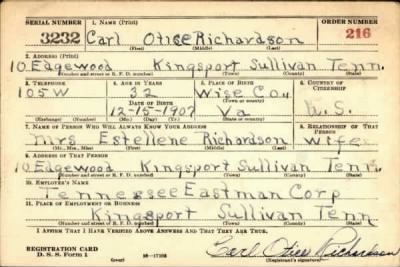 SERIAL NUMBER 1. NAME (Print) ORDER NUMBER
3232 Carl Otise Richardson 216
(First) (Middle) (Last)
2. ADDRESS (Print)
10 Edgewood Kingsport Sullivan Tenn.
(Number and street or R. F. D. number) (Town) (County) (State)
3. TELEPHONE 4. AGE IN YEARS 5. PLACE OF BIRTH 6. COUNTRY OF CITIZENSHIP
105W 32 Wise Co.,
DATE OF BIRTH (Town or county)
12-15-1907 Va U.S.
(Exchange) (No.) (Mo.) (Day) (Yr.) (State or country)
7. NAME OF PERSON WHO WILL ALWAYS KNOW YOUR ADDRESS 8. RELATIONSHIP OF THAT PERSON
Mrs Estellene Richardson wife
(Mr., Mrs., Miss) (First) (Middle) (Last)
9. ADDRESS OF THAT PERSON
10 Edgewood Kingsport Sullivan Tenn.
(Number and street or R. F. D. number) (Town) (County) (State)
10. EMPLOYER'S NAME
Tennessee Eastman Corp
11. PLACE OF EMPLOYMENT OR BUSINESS
Kingsport Sullivan Tenn
(Number and street or R. F. D. number) (Town) (County) (State)
I AFFIRM THAT I HAVE VERIFIED ABOVE ANSWERS AND THAT THEY ARE TRUE.
REGISTRATION CARD
D. S. S. Form 1 Carl Otise Richardson
(Registrant's signature)